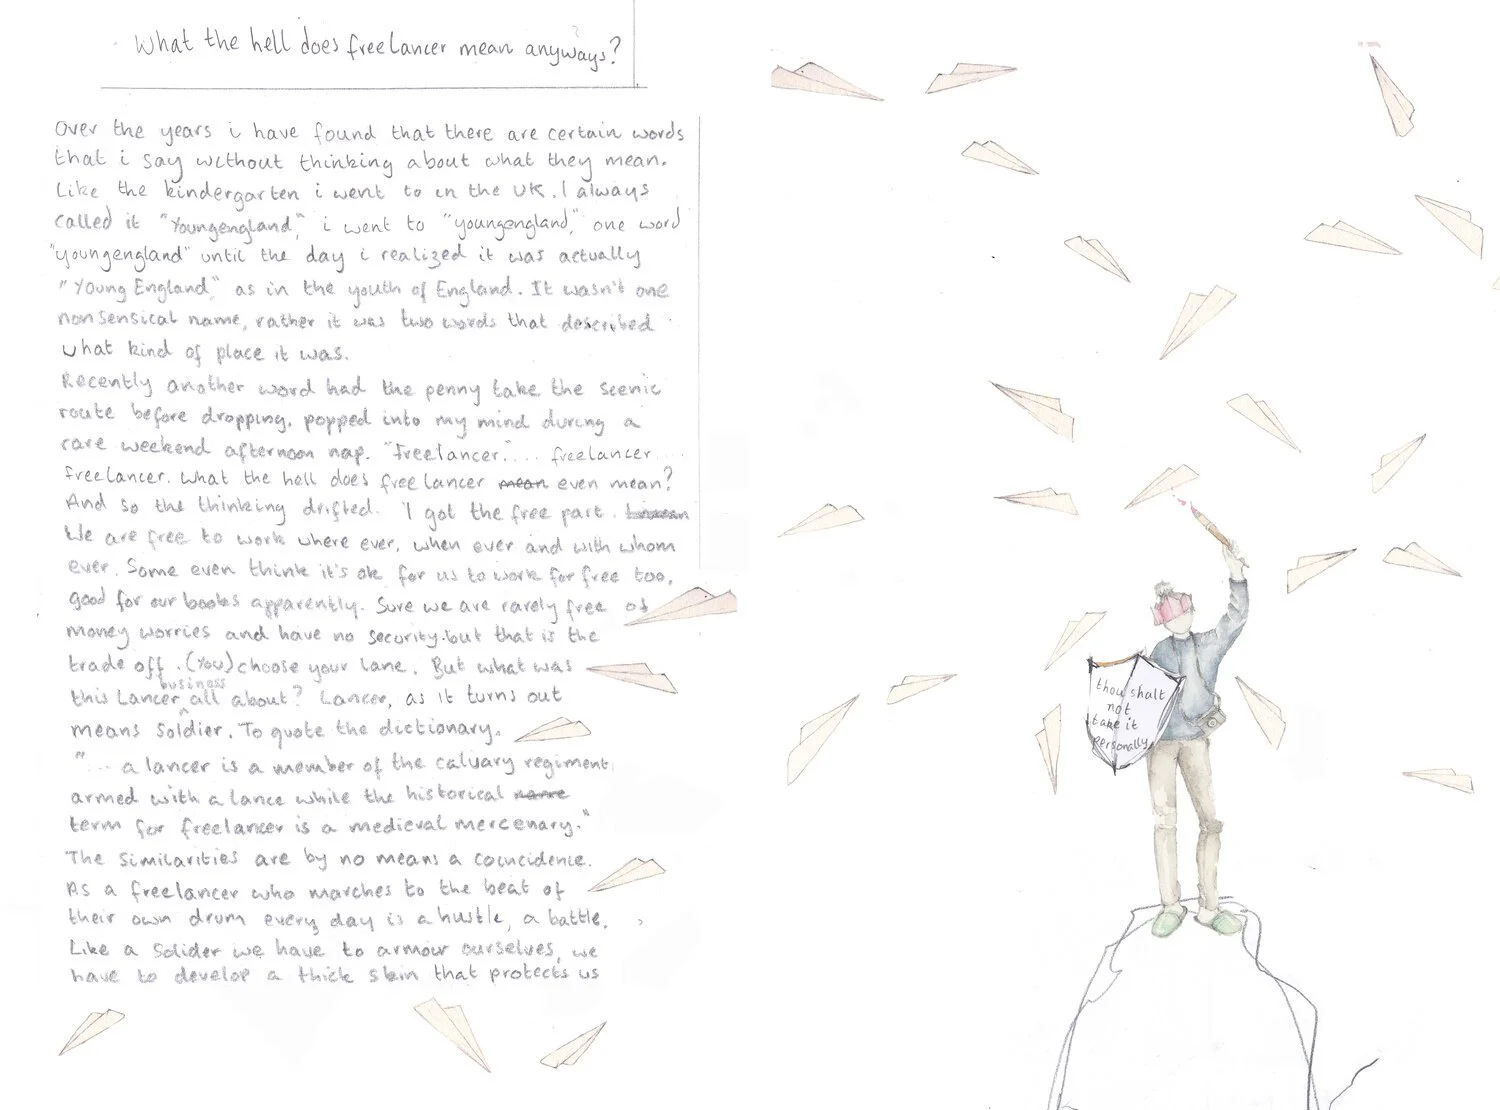 What the hell does freelancer mean anyways?
Over the years i have found that there are certain words
that i say without thinking about what they mean.
Like the kindergarten i went to in the UK. I always
called it "Youngengland," i went to "youngengland," one word
"youngengland" until the day i realized it was actually
"Young England," as in the youth of England. It wasn't one
nonsensical name, rather it was two words that described
what kind of place it was.
Recently another word had the penny take the scenic
route before dropping, popped into my mind during a
rare weekend afternoon nap. "Freelancer."... freelancer...
freelancer. What the hell does freelancer mean even mean?
And so the thinking drifted. I got the free part.
We are free to work where ever, when ever and with whom
ever. Some even think it's ok for us to work for free too,
good for our books apparently. Sure we are rarely free of
money worries and have no security but that is the
trade off. (You) choose your lane. But what was
this Lancer business all about? Lancer, as it turns out
means Soldier. To quote the dictionary.
"... a lancer is a member of the calvary regiment
armed with a lance while the historical name
term for freelancer is a medieval mercenary."
The similarities are by no means a coincidence.
As a freelancer who marches to the beat of
their own drum every day is a hustle, a battle.
Like a Solider we have to armour ourselves, we
have to develop a thick skin that protects us
thou shalt
not
take it
personally